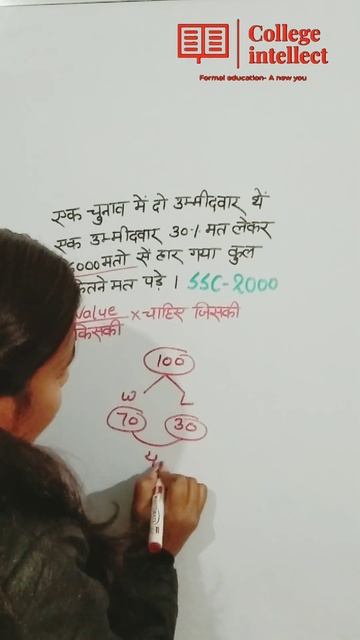 College
intellect
Formal education- A new you
एक चुनाव में दो उम्मीदवार थें
एक उम्मीदवार 30% मत लेकर
6000 मतो से हार गया कुल
कितने मत पड़े । SSC-2000
Value × चाहिए जिसकी
किसकी
100
W L
70 30
4